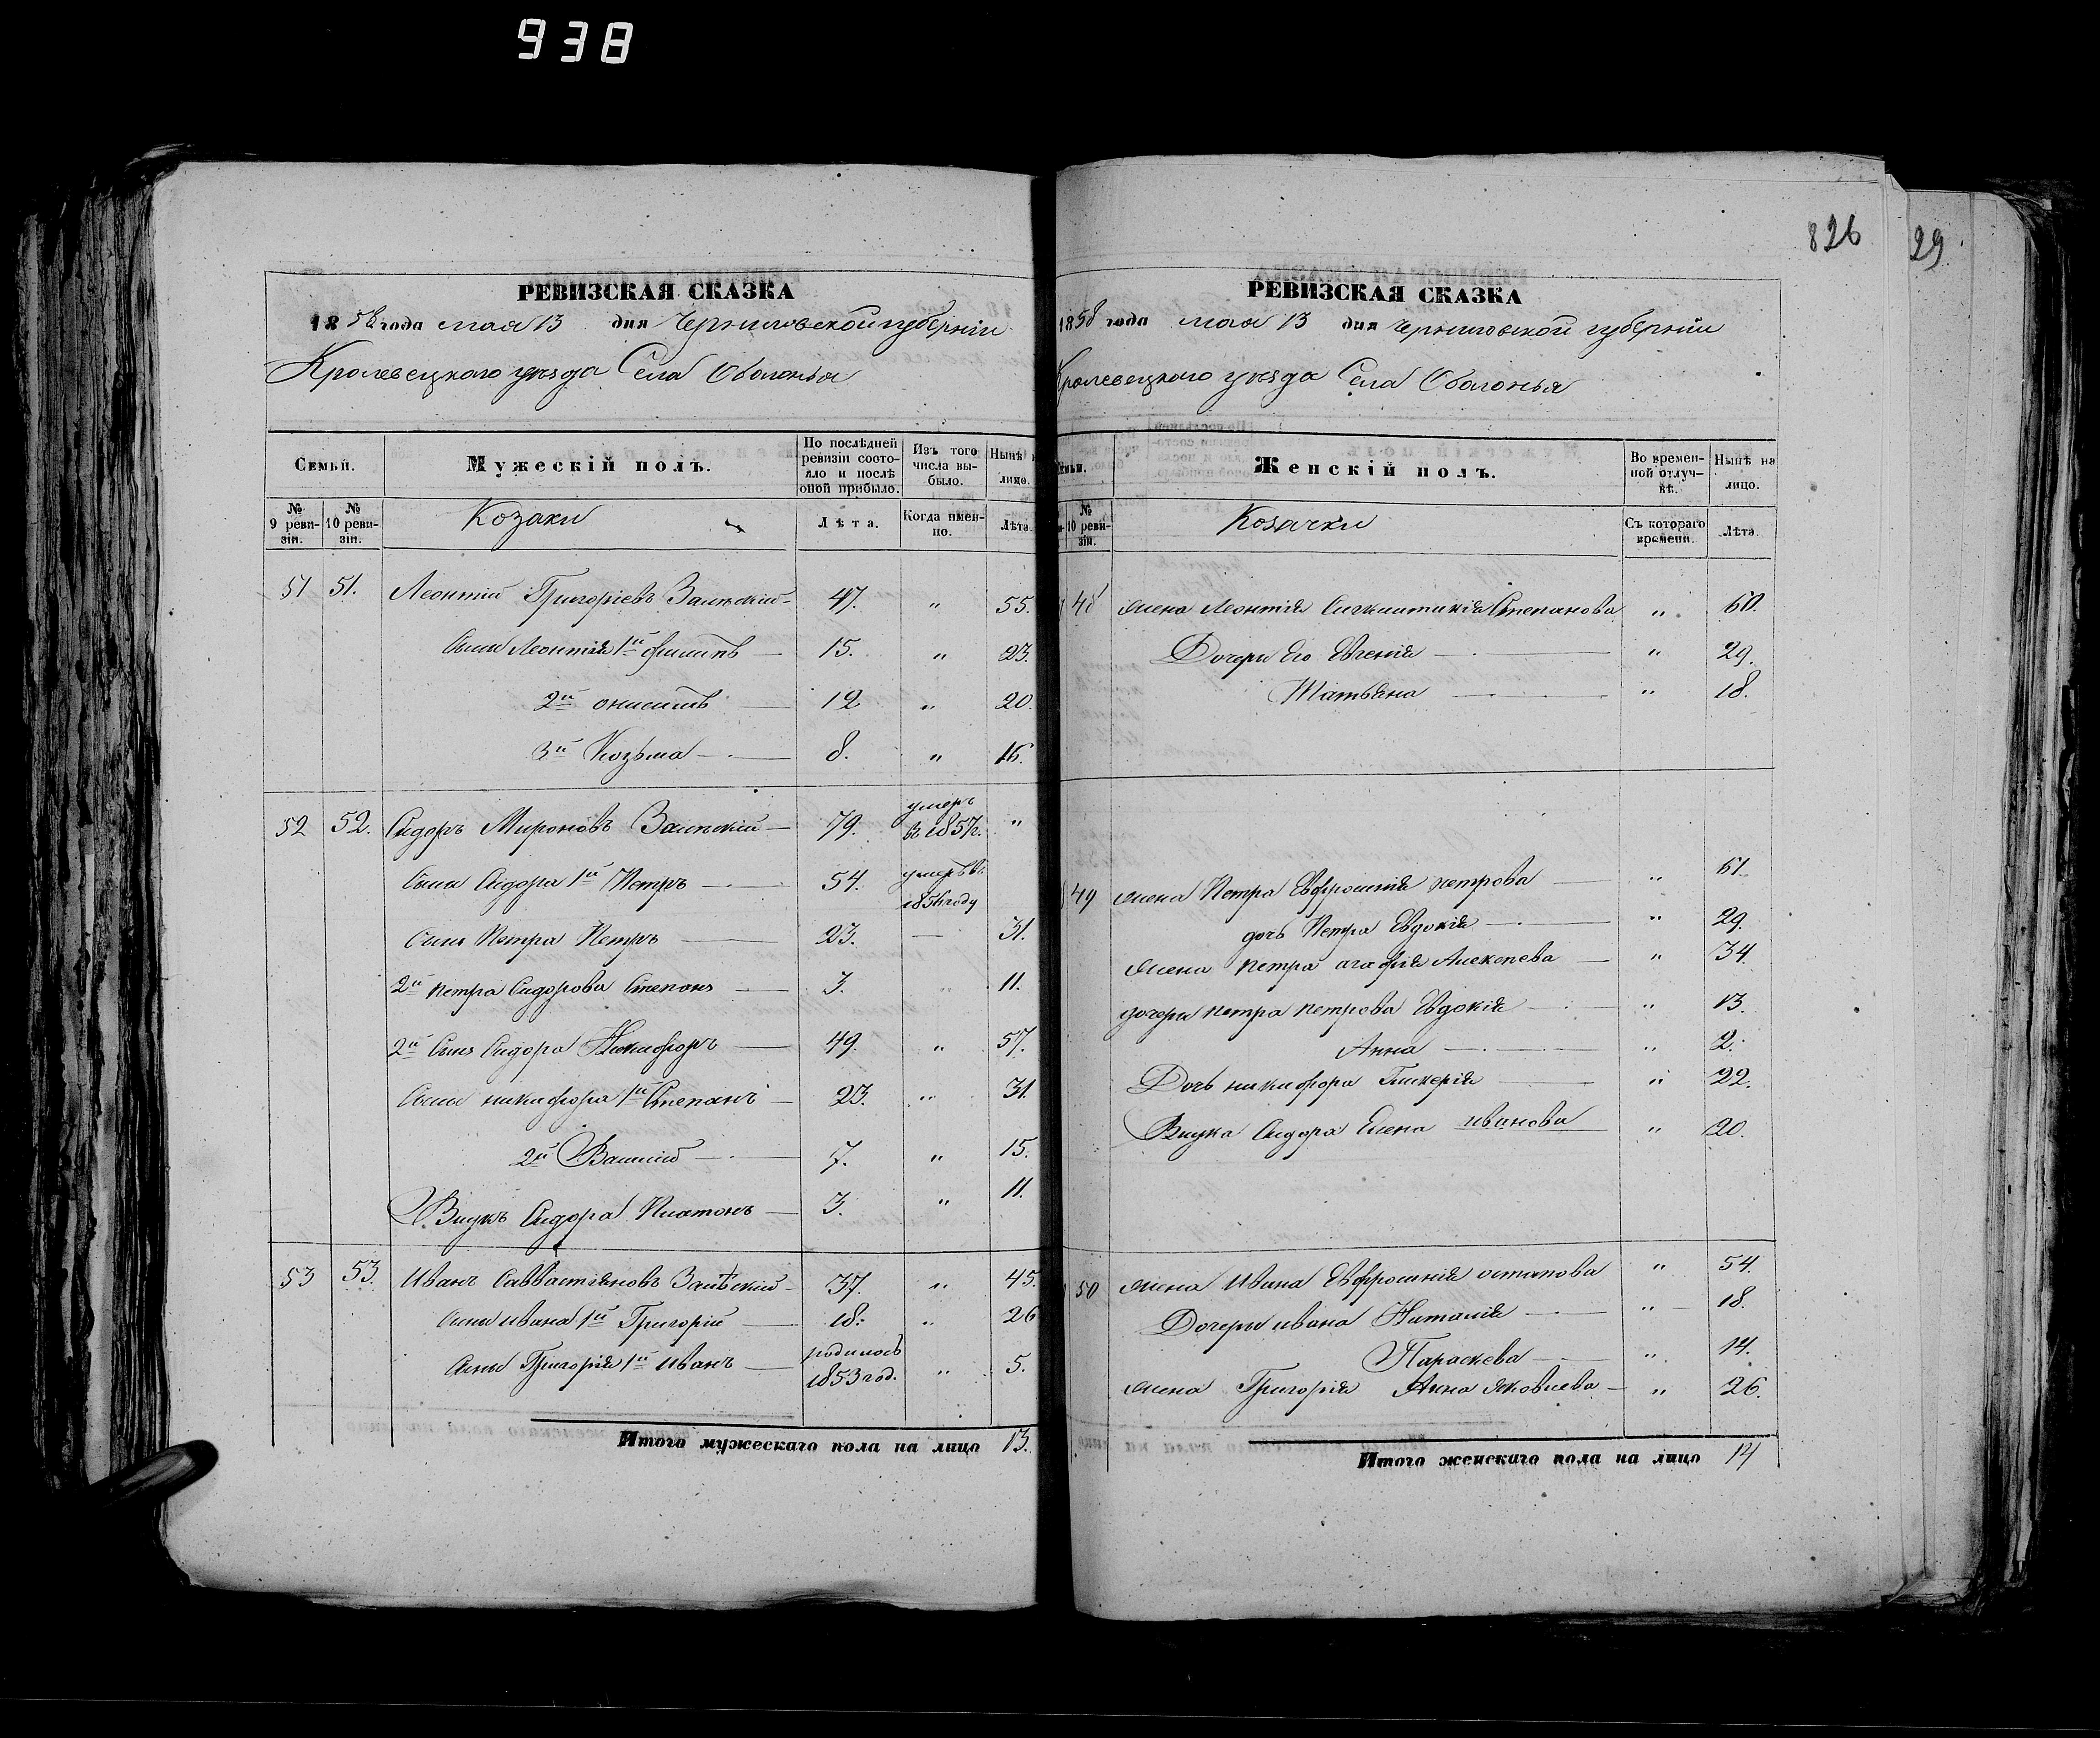 938
826
29
РЕВИЗСКАЯ СКАЗКА
1858 года мая 13 дня Черниговской губернии
Кролевецкаго уезда Села Оболонья
Семьи.
Мужескій полъ.
По послѣдней ревизіи состояло и послѣ оной прибыло.
Изъ того числа выбыло.
Нынѣ лицо.
№ 9 ревизіи.
№ 10 ревизіи.
Козаки
Лѣта.
Когда именно.
Лѣта.
51 51. Леонтій Григоріевъ Заинскій 47. " 55.
Сыны Леонтія 1й Филипъ 15. " 23.
2й онисимъ 12 " 20.
3й Козьма 8. " 16.
52 52. Сидоръ Мироновъ Заинскій 79. умеръ въ 1857г. "
Сыны Сидора 1й Петръ 54. умеръ въ 1856 году
Сынъ Петра Петръ 23. — 31.
2й петра Сидорова Степанъ 3. 11.
2й Сынъ Сидора Никифоръ 49. " 57.
Сыны никифора 1й Степанъ 23. " 31.
2й Василій 7. " 15.
Внукъ Сидора Платонъ 3. " 11.
53 53. Иванъ Савватіяновъ Заинскій 37. " 45.
Сыны ивана 1й Григорій 18. " 26
Сыны Григорія 1й иванъ родилось 1853 год. " 5.
Итого мужескаго пола на лицо 13.
РЕВИЗСКАЯ СКАЗКА
1858 года мая 13 дня Черниговской губернии
Кролевецкаго уезда Села Оболонья
Женскій полъ.
Во временной отлучкѣ.
Нынѣ на лицо.
№ 10 ревизіи.
Козачки
Съ котораго времени.
Лѣта.
48 жена Леонтія Степанова " 60.
Дочери Его Евгенія " 29.
Татьяна " 18.
49 жена Петра Евфросинія петрова " 61.
дочь Петра Евдокія " 29.
жена петра агафія Алексеева " 34
дочери петра петрова Евдокія " 13.
Анна " 2.
Дочь никифора Гликерія " 22.
Внука Сидора Елена иванова " 20.
50 жена Ивана Евфросинія остапова " 54.
Дочери ивана Наталія " 18.
Параскева " 14.
жена Григорія Анна яковлева " 26.
Итого женскаго пола на лицо 14